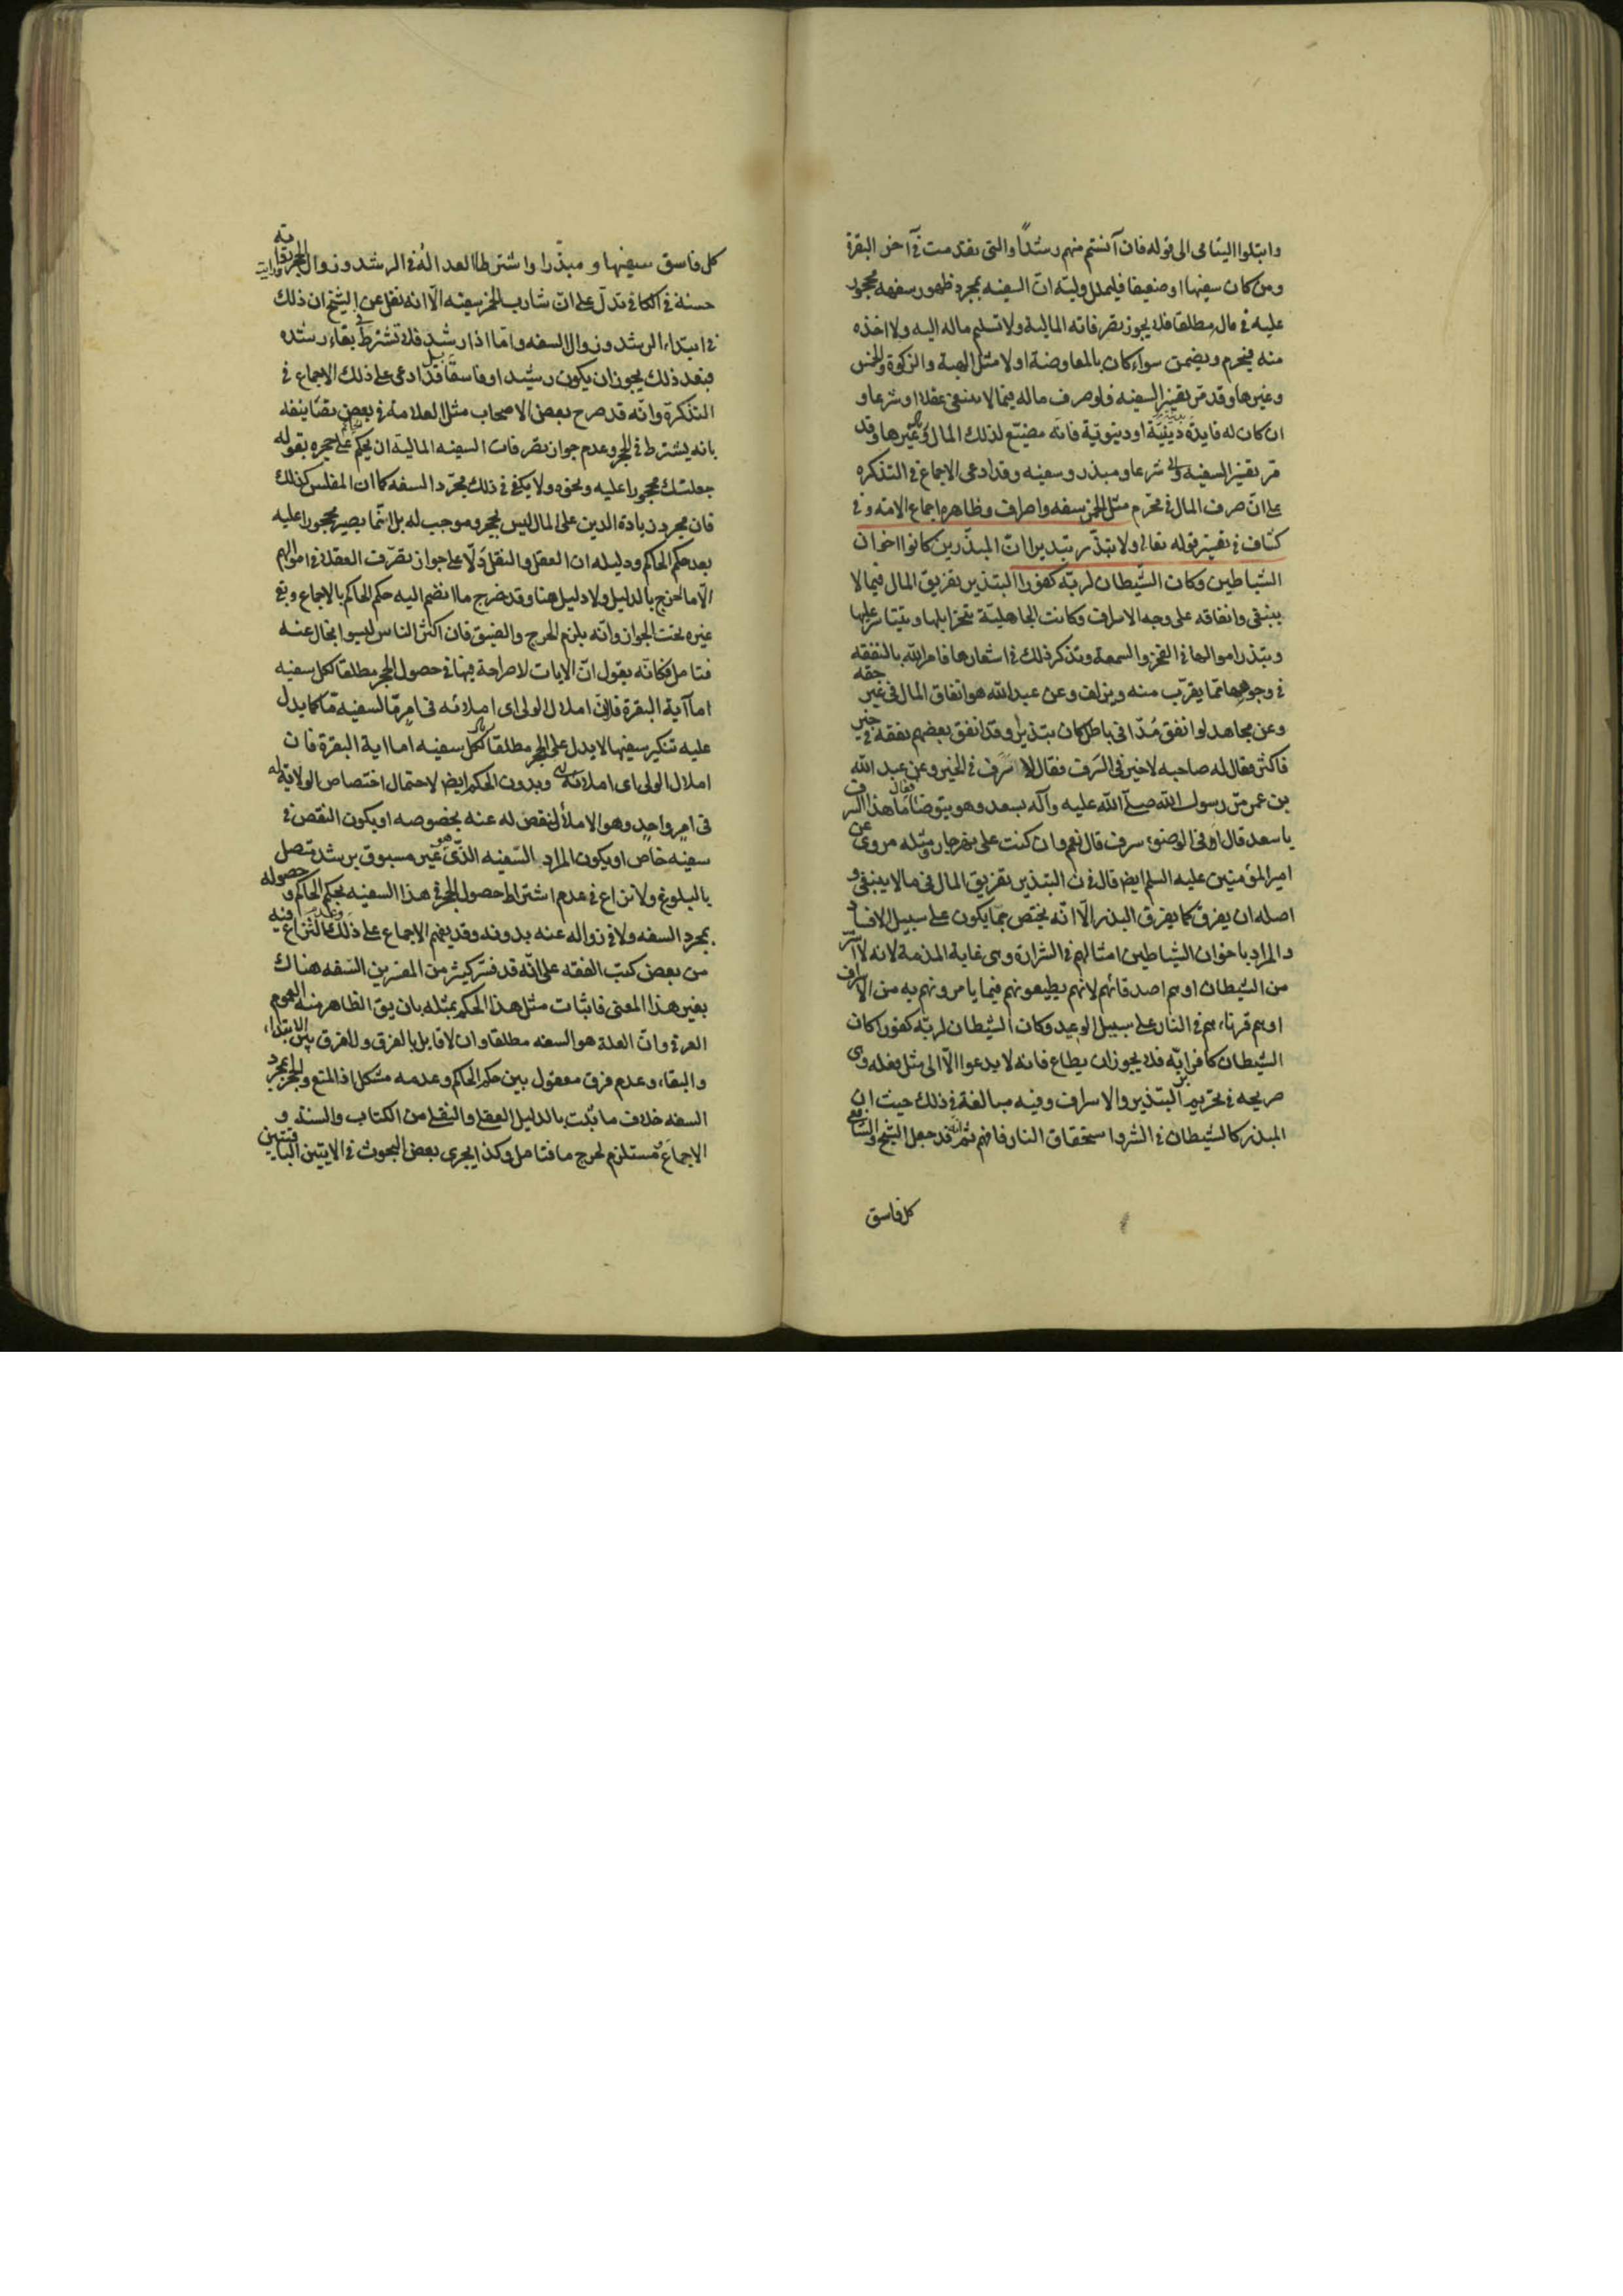 وابتلوا اليتامى الى قوله فان آنستم منهم رشدًا والتى تقدمت فى آخر البقرة
ومن كان سفيها او ضعيفا فليملل وليّه انّ السفيه بمجرد ظهور سفهه محجور
عليه فى ماله مطلقا فلا يجوز تصرفاته المالية ولا تسليم ماله اليه ولا اخذه
منه فيحرم ويضمن سواء كان بالمعاوضة اولا مثل الهبة والزكوة والخمس
وغيرها وقد مرّ تفسير السفيه فلو صرف ماله فيما لا ينبغى عقلا او شرعا و
ان كان له فايدة دينيّة او دنيويّة فانّه مضيّع لذلك المال وغيرها وقد
مرّ تفسير السفيه شرعا ومبذر وسفيه وقد ادعى الاجماع فى التذكره
على انّ صرف المال فى محرّم مثل الخمر سفه واسراف وظاهره اجماع الامة وفى
كشّاف فى تفسير قوله تعالى ولا تبذّر تبذيرا انّ المبذّرين كانوا اخوان
الشياطين وكان الشّيطان لربّه كفورا التبذير تفريق المال فيما لا
ينبغى وانفاقه على وجه الاسراف وكانت الجاهليّة تنحر ابلها وتتياسر عليها
وتبذر اموالها فى الفخر والسمعة وتذكر ذلك فى اشعارها فامر الله بالنفقه
فى وجوهها ممّا يقرّب منه ويزلف وعن عبدالله هو انفاق المال فى غير حقه
وعن مجاهد لو انفق مُدّا فى باطل كان تبذيرا وقد انفق بعضهم نفقه فى خير
فاكثر فقال له صاحبه لا خير فى السَرف فقال لا سَرَف فى الخير وعن عبد الله
بن عمر مرّ رسول الله صلّى الله عليه وآله بسعد وهو يتوضّأ فقال ما هذا السرف
يا سعد قال اوفى الوضوء سرف قال نعم وان كنت على نهر جار ومثله مروى عن
امير المؤمنين عليه السلم ايض قال فى ن التبذير تفريق المال فى ما لا ينبغى و
اصله ان يفرق كما يفرق البذر الّا انّه يختص بما يكون على سبيل الافساد
والمراد باخوان الشياطين امثالهم فى الشرارة وهى غاية المذمة لانه لا اشرّ
من الشيطان او هم اصدقائهم لانهم يطيعونهم فيما يامرونهم به من الاسراف
او هم قرناءهم فى النار على سبيل الوعيد وكان الشيطان لربّه كفورا كان
الشيطان كافرا به فلا يجوز ان يطاع فانه لا يدعوا الّا الى مثل فعله وهى
صريحه فى تحريم التبذير والاسراف وفيه مبالغة فى ذلك حيث ان
المبذر كالشيطان فى الشر واستحقاق النار فافهم ثم انّه قد جعل الشيخ والشافعى
كل فاسق
كل فاسق سفيها ومبذّرا واشترطا العدالة فى الرشد وزوال الحجر به
حسنة فى الكافى تدلّ على انّ شارب الخمر سفيه الّا انه نقل عن الشيخ ان ذلك
فى ابتداء الرشد وزوال السفه وامّا اذا رشد فلا تشترط فى بقاء رشده
فبعد ذلك يجوز ان يكون رشيدا وفاسقا بل قد ادعى على ذلك الاجماع فى
التذكرة وانّه قد صرح بعض الاصحاب مثل العلامة فى بعض تصانيفه
بانه يشترط فى الحجر وعدم جواز تصرفات السفيه المالية ان يحكم على حجره بقوله
جعلتك محجورا عليه ونحوه ولا يكفى فى ذلك مجرّد السفه كما ان المفلس كذلك
فان مجرد زيادة الدين على المال ليس بحجر وموجب له بل انّما يصير محجورا عليه
بعد حكم الحاكم ودليله ان العقل والنقل دَلّا على جواز تصرّف العقلاء فى اموالهم
الّا ما اخرج بالدليل ولا دليل هنا وقد خرج ما انضم اليه حكم الحاكم بالاجماع وبقى
غيره تحت الجواز وانّه يلزم الحرج والضيق فان اكثر الناس ليسوا بخال عنه
فتامل فكانّه يقول انّ الايات لا صراحة فيها فى حصول الحجر مطلقا لكل سفيه
اما آية البقرة فلانّ املال الولى اى املائه فى امرٍ مّا لسفيه مّا كما يدل
عليه تنكير سفيها لا يدل على الحجر مطلقا لكل سفيه اما اية البقرة فان
املال الولى اى املائه وبدون الحكم ايض لاحتمال اختصاص الولاية له
فى امرٍ واحدٍ وهو الاملأ لنقص له عنه بخصوصه او يكون النقص فى
سفيه خاص او يكون المراد السّفيه الذّى هو غير مسبوق برشد متصل
بالبلوغ ولا نزاع فى عدم اشتراط حصول الحجر فى هذا السفيه بحكم الحاكم وحصوله
بمجرد السفه ولا فى زواله عنه بدونه وقد يفهم الاجماع على ذلك وعدم النزاع فيه
من بعض كتب الفقه على انّه قد فسّر كثير من المفسرين السّفه هناك
بغير هذا المعنى فاثبات مثل هذا الحكم بمثله بان يق الظاهر منه العموم
العرفى وانّ العلة هو السفه مطلقا وان لا قايل بالفرق ولا فرق بين الابتداء
والبقاء وعدم فرق معقول بين حكم الحاكم وعدمه مشكل اذ المنع والحجر بمجرد
السفه خلاف ما ثبت بالدليل العقلى والنقلى من الكتاب والسنة و
الاجماع مستلزم لحرج ما فتامل وكذا يجرى بعض البحوث فى الايتين الباقيتين